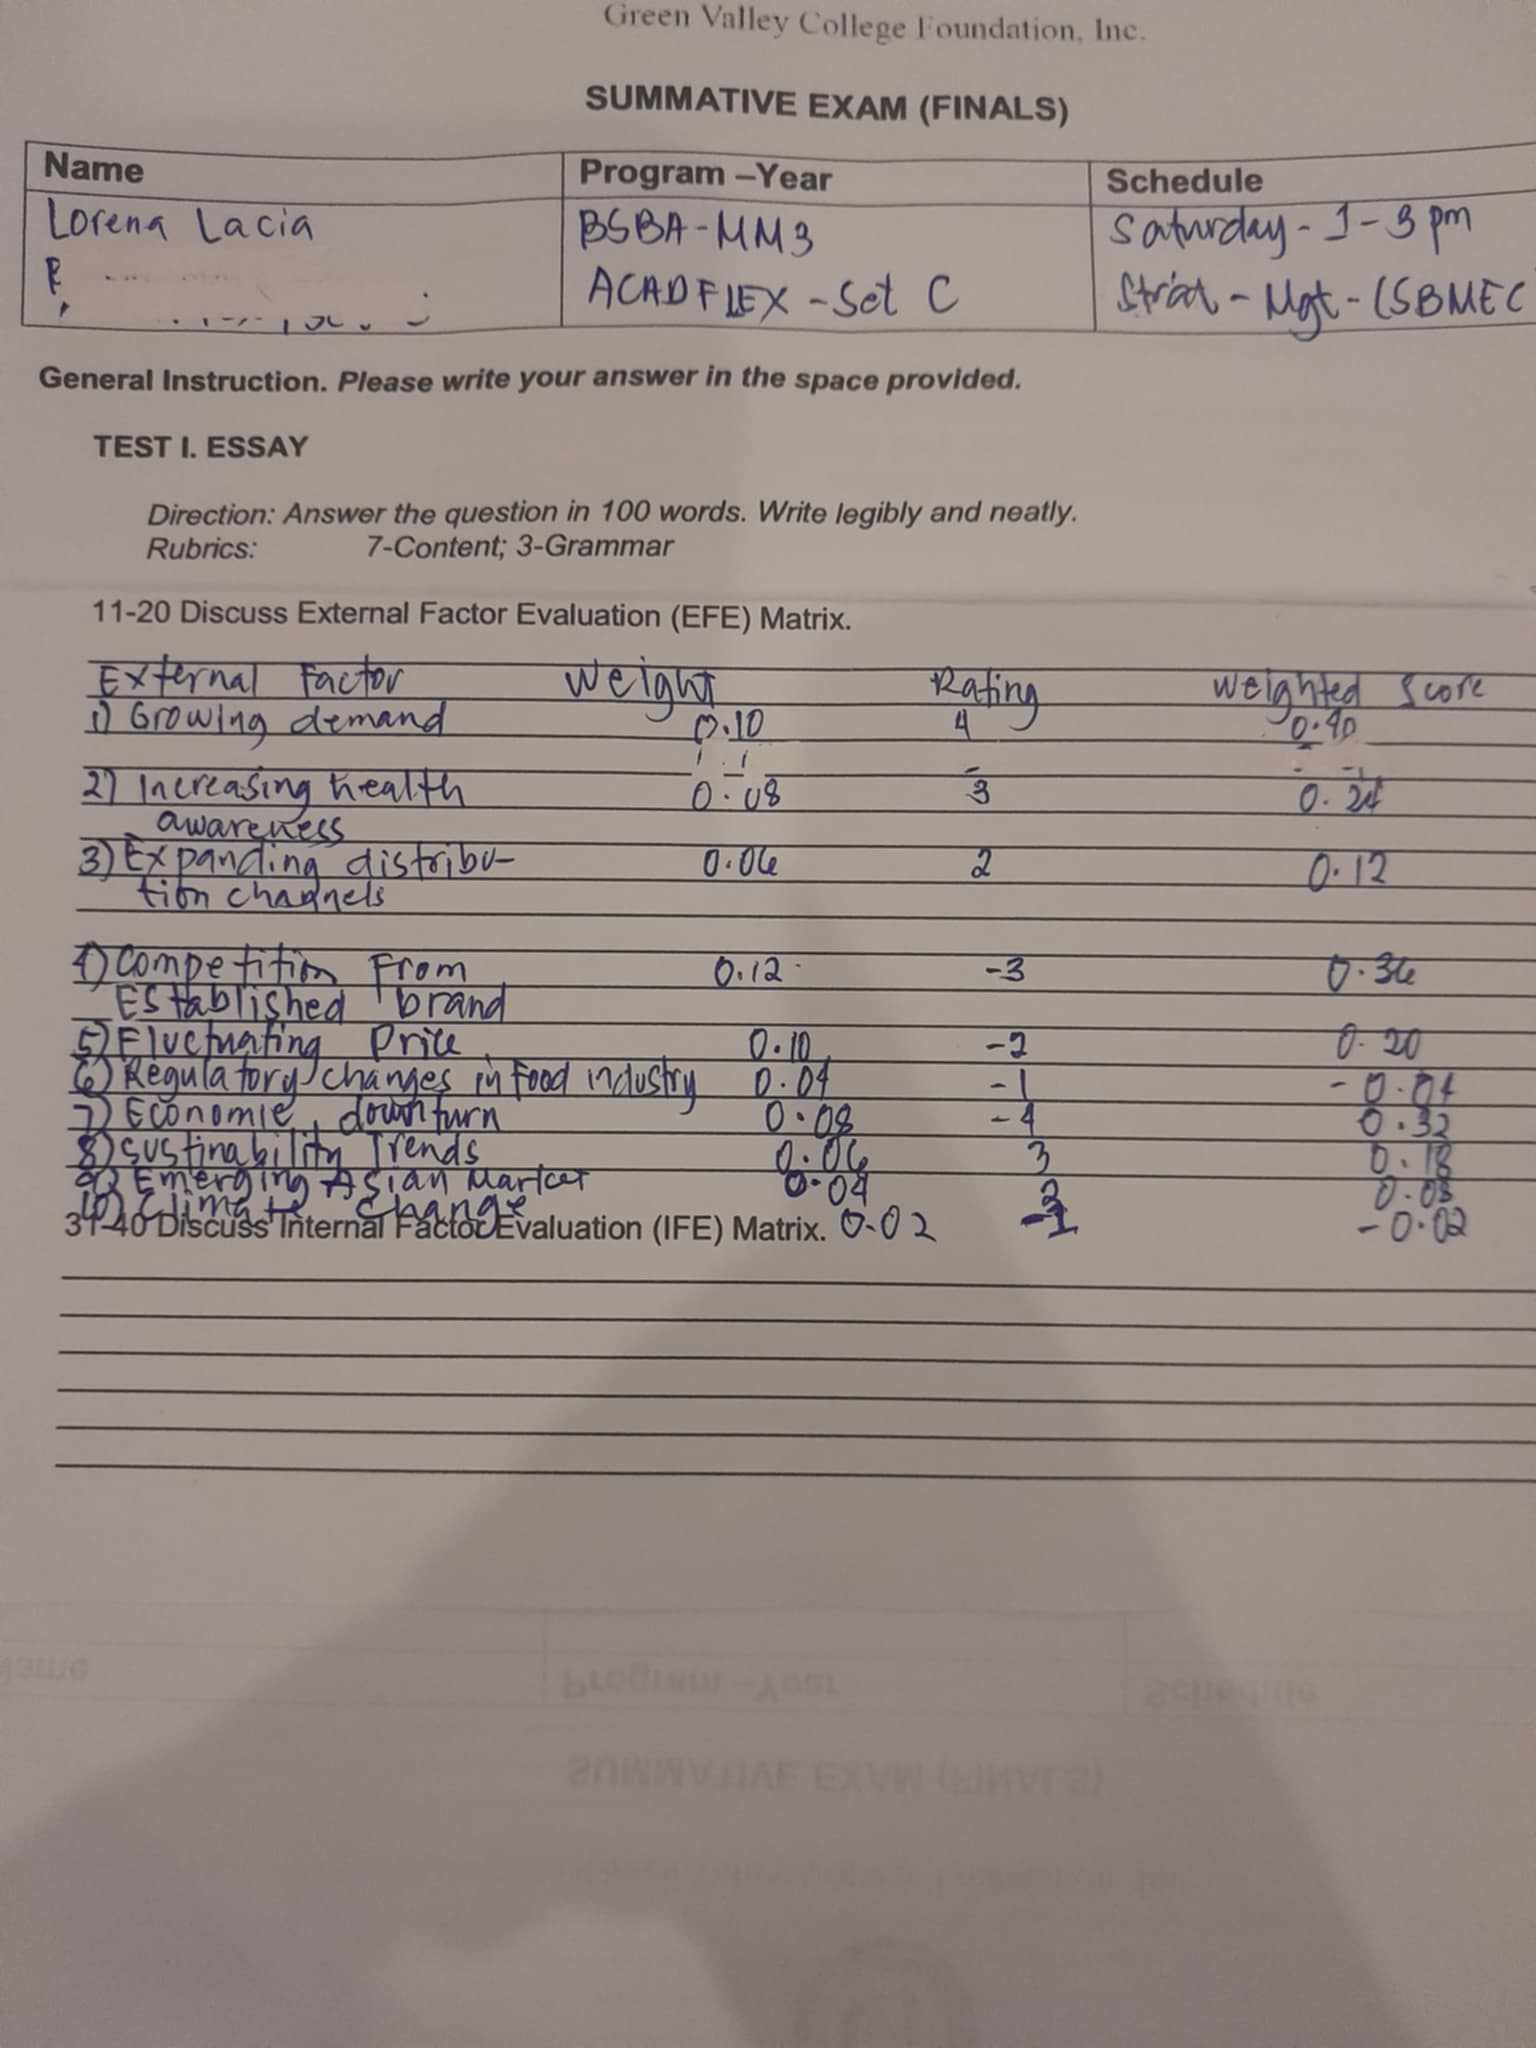 Green Valley College Foundation, Inc.
SUMMATIVE EXAM (FINALS)
Name Program –Year Schedule
Lorena Lacia BSBA-MM3 Saturday - 1-3 pm
ACADFLEX - Set C Strat - Mgt - (SBMEC
General Instruction. Please write your answer in the space provided.
TEST I. ESSAY
Direction: Answer the question in 100 words. Write legibly and neatly.
Rubrics: 7-Content; 3-Grammar
11-20 Discuss External Factor Evaluation (EFE) Matrix.
External Factor Weight Rating Weighted Score
1) Growing demand 0.10 4 0.40
2) Increasing health 0.08 3 0.24
awareness
3) Expanding distribu- 0.06 2 0.12
tion channels
4) Competition From 0.12 -3 0.36
Established brand
5) Fluctuating Price 0.10 -2 0.20
6) Regulatory changes in Food industry 0.04 -1 -0.04
7) Economic downturn 0.08 -4 0.32
8) Sustinability Trends 0.06 3 0.18
9) Emerging Asian Market 0.04 2 0.08
10) Climate Change 0.02 -1 -0.02
31-40 Discuss Internal Factor Evaluation (IFE) Matrix.
Name Program –Year Schedule
SUMMATIVE EXAM (FINALS)